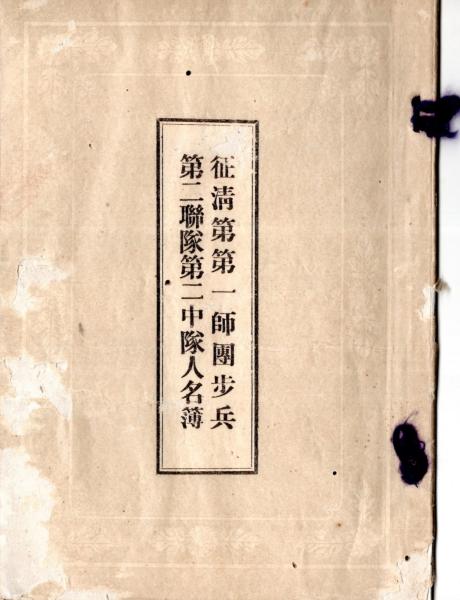 征淸第第一師團步兵
第二聯隊第二中隊人名簿